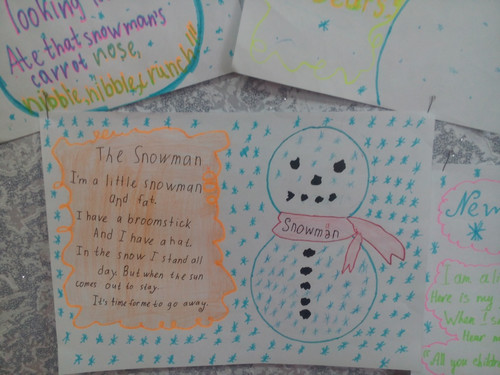 looking
Ate that snowman's
carrot nose,
nibble, nibble, crunch!!!
The Snowman
I'm a little snowman
and fat.
I have a broomstick
And I have a hat.
In the snow I stand all
day. But when the sun
comes out to stay.
It's time for me to go away.
Snowman
New
I am a
Here is my
When I
Hear
"All you